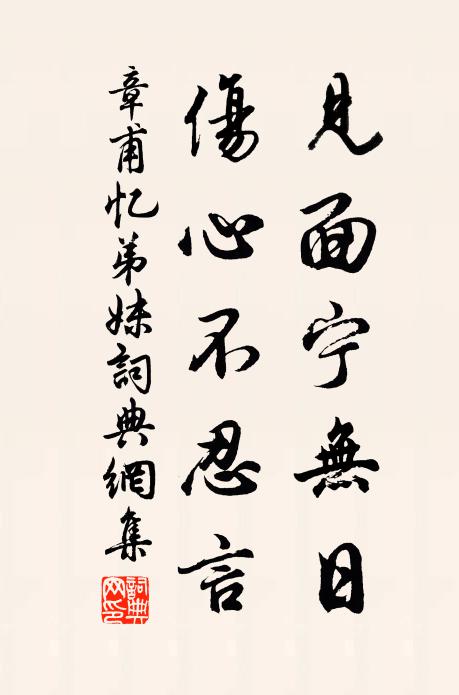 見面宁無日
傷心不忍言
章甫忆弟妹詞典網集
詞典
网印